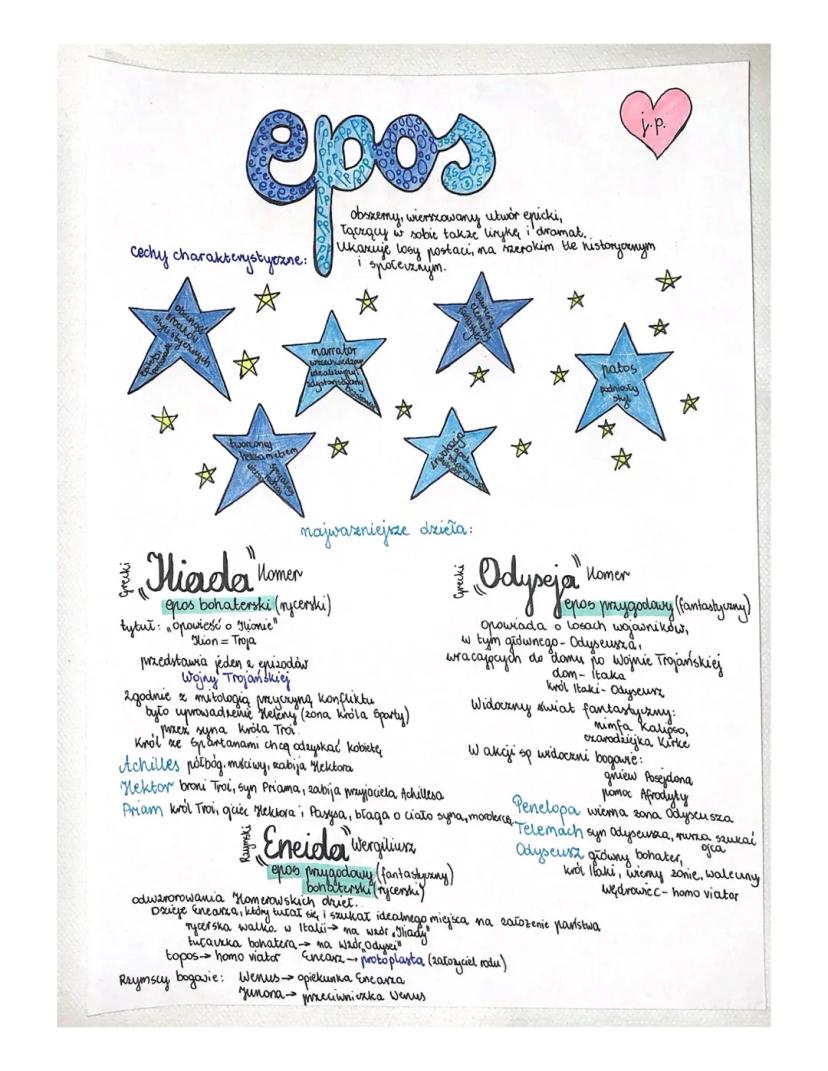 epos
j.p.
obszerny, wierszowany utwór epicki,
łączący w sobie także lirykę i dramat.
Ukazuje losy postaci, na szerokim tle historycznym
i społecznym.
cechy charakterystyczne:
obecność
środków
stylistycznych
narrator
wszechwiedzący
idealizujący
zdystansowany
elementy
patos
podniosły
styl
tworzony
heksametrem
inwokacja
najważniejsze dzieła:
Grecki
„Iliada" Homer
epos bohaterski (rycerski)
tytuł: „opowieść o Ilionie"
Ilion = Troja
przedstawia jeden z epizodów
Wojny Trojańskiej
Zgodnie z mitologią przyczyną konfliktu
było uprowadzenie Heleny (żona króla Sparty)
przez syna króla Troi.
Król ze Spartanami chcą odzyskać kobietę
Achilles półbóg, mściwy, zabija Hektora
Hektor broni Troi, syn Priama, zabija przyjaciela Achillesa
Priam król Troi, ojciec Hektora i Parysa, błaga o ciało syna, mordercę
Grecki
„Odyseja" Homer
epos przygodowy (fantastyczny)
opowiada o losach wojowników,
w tym głównego - Odyseusza,
wracających do domu po Wojnie Trojańskiej
dom - Itaka
król Itaki - Odyseusz
Widoczny świat fantastyczny:
nimfa Kalipso,
czarodziejka Kirke
W akcji są widoczni bogowie:
gniew Posejdona
pomoc Afrodyty
Penelopa wierna żona Odyseusza
Telemach syn Odyseusza, rusza szukać
ojca
Odyseusz główny bohater,
król Itaki, wierny żonie, waleczny
wędrowiec - homo viator
Rzymski
„Eneida" Wergiliusz
epos przygodowy (fantastyczny)
bohaterski (rycerski)
odwzorowania Homerowskich dzieł.
Dzieje Eneasza, który tułał się i szukał idealnego miejsca na założenie państwa
rycerska walka w Italii → na wzór „Iliady"
tułaczka bohatera → na wzór „Odysei"
topos → homo viator Eneasz → protoplasta (założyciel rodu)
Rzymscy bogowie: Wenus → opiekunka Eneasza
Junona → przeciwniczka Wenus